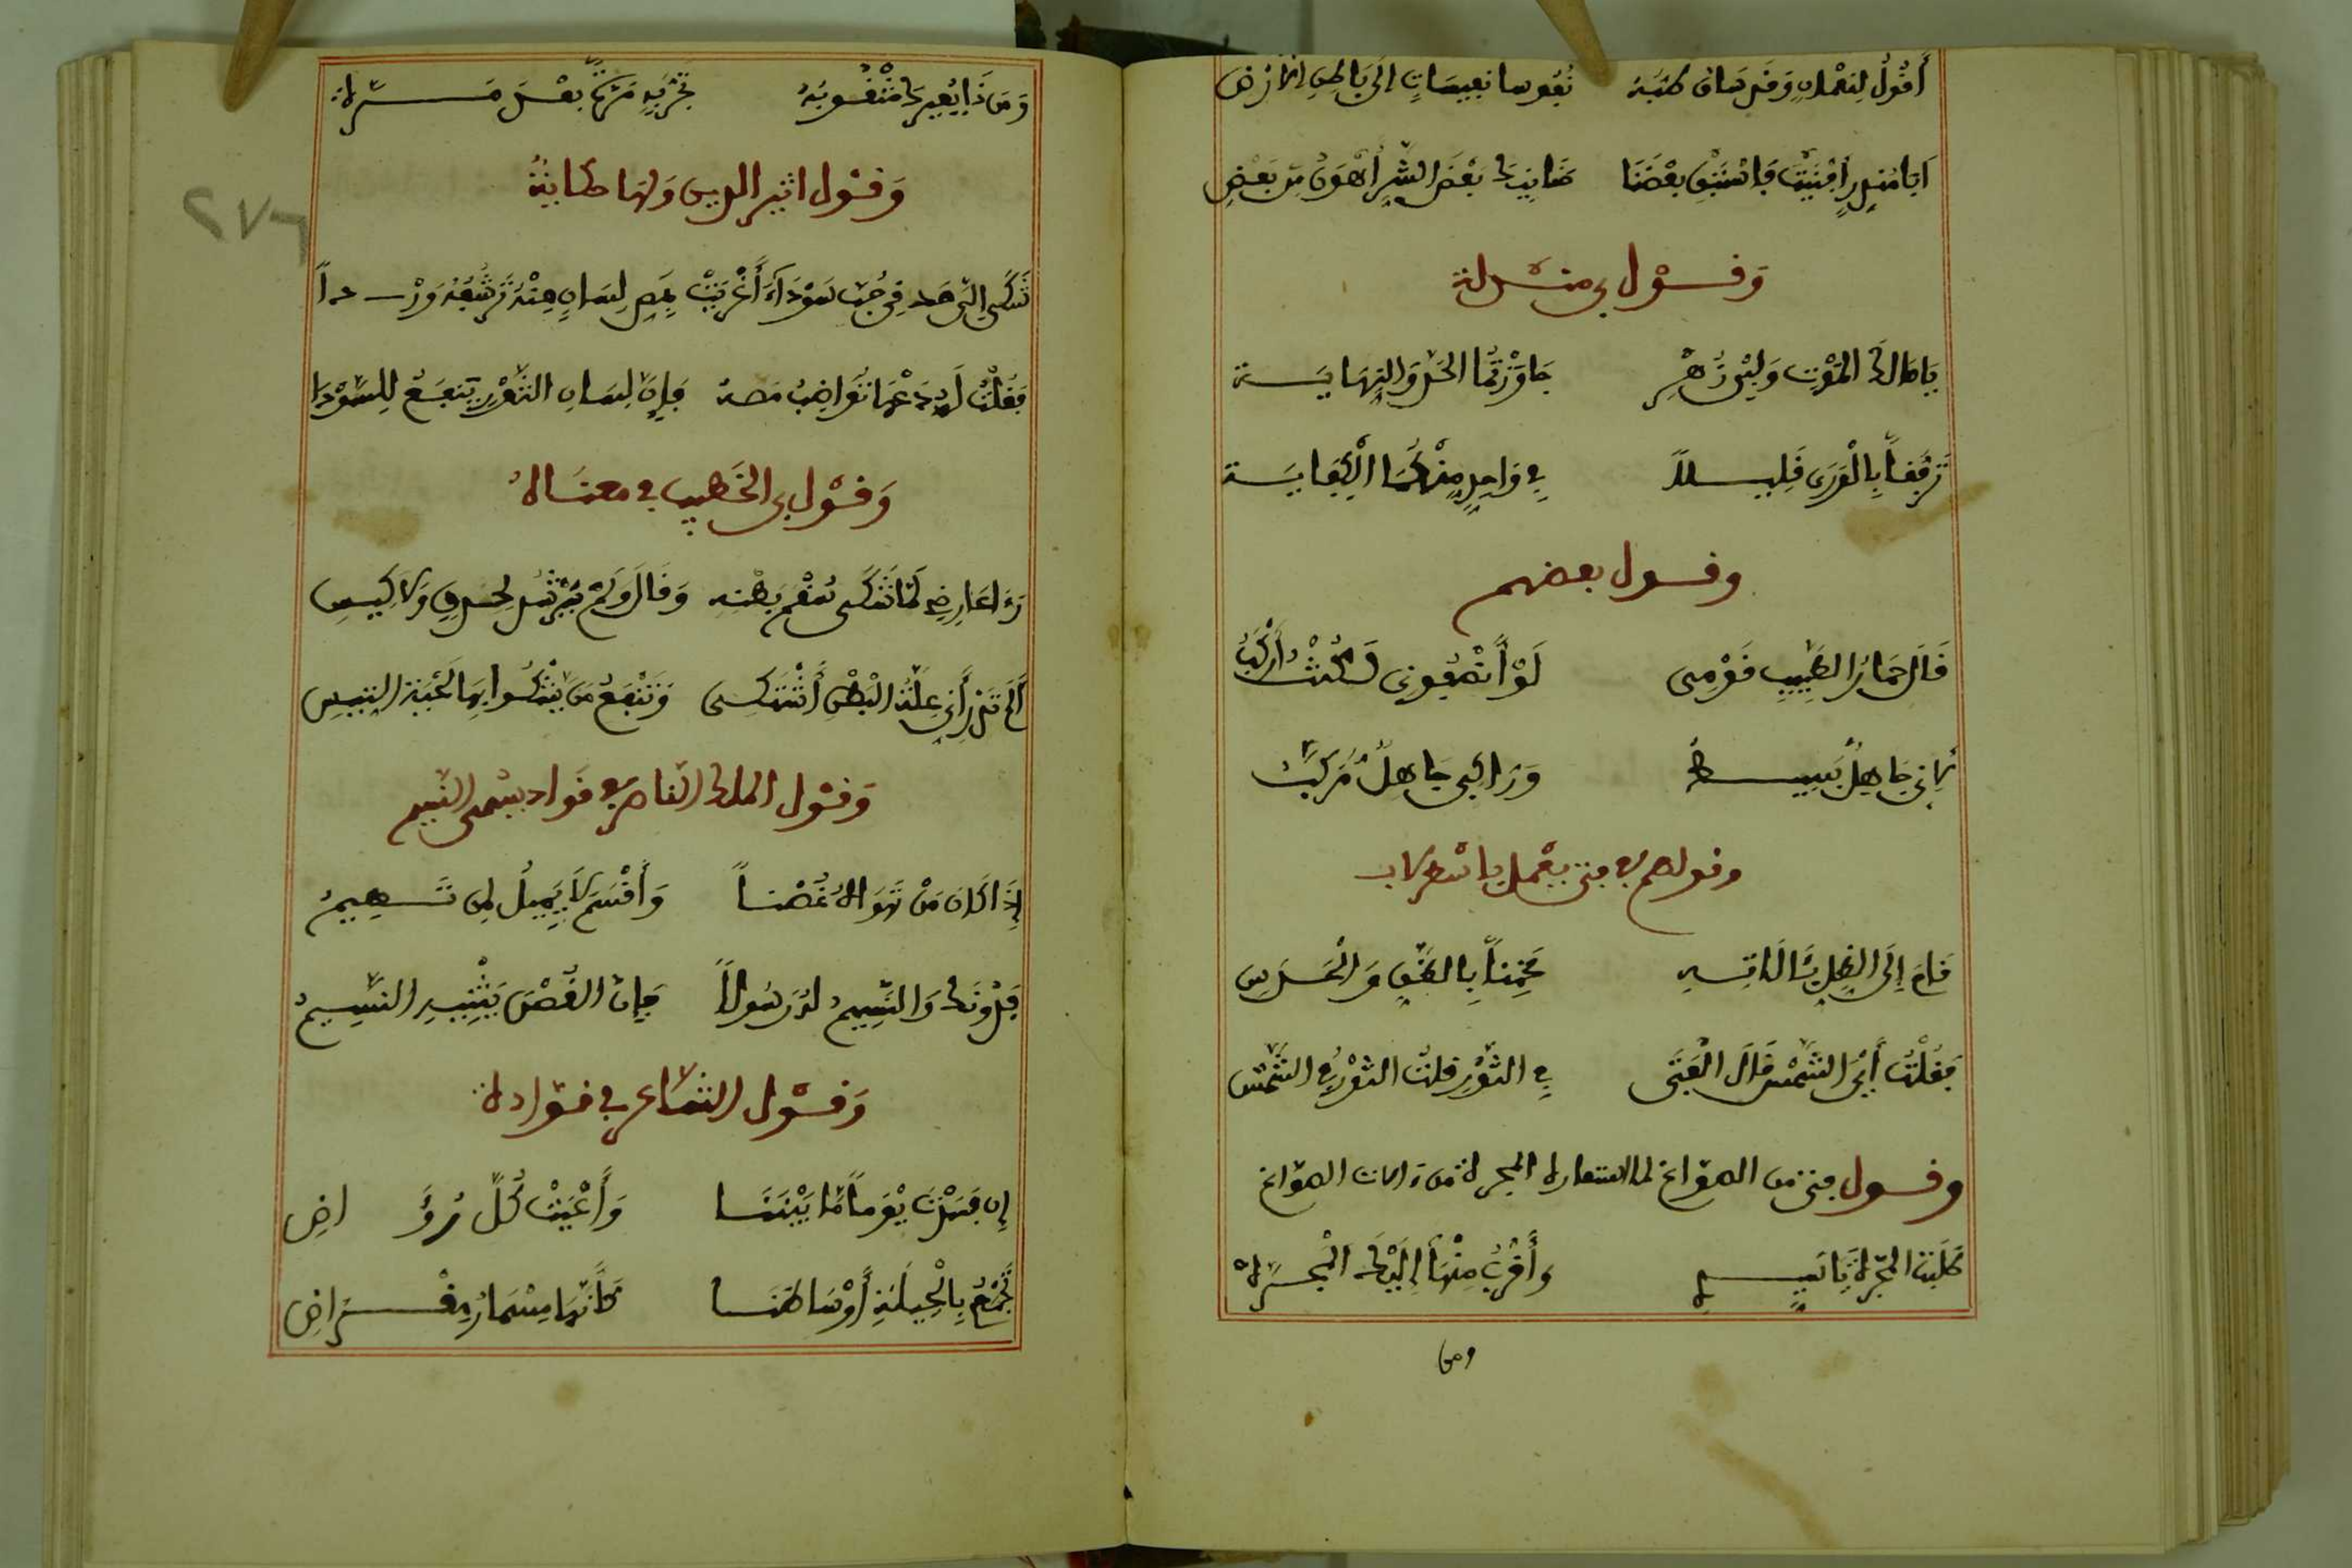 أَقُولُ لِنُعْمَانٍ وَقَدْ سَاقَ طِبُّهُ نُفُوسا نَفِيسَاتٍ إلَى بَاطِنِ الأَرْضِ
أَبَا مُنْذِرٍ أَفْنَيْتَ فَاسْتَبْقِ بَعْضَنَا حَنَانَيْكَ بَعْضُ الشَّرِّ أَهْوَنُ مِنْ بَعْضِ
وَقَوْل
يَا مَالِكَ المَوْتِ وَابْنَ زُهْرٍ جَاوَزْتُمَا الحَدَّ وَالنِّهَايَة
تَرَفَّقَا بِالْوَرَى قَلِيلاً فِي وَاحِدٍ مِنْكُمَا الْكِفَايَة
وقول بعضهم
قَالَ حِمَارُ الطَّبِيبِ قَوْمِى لَوْ أَنْصَفُونِى لَكُنْتُ أَرْكَبُ
لأَنِّي جَاهِلٌ بَسِيطُ وَرَاكِبِى جَاهِلٌ مُرَكَّبُ
وقولهم في فتى يعمل بالاسطرلاب
قَامَ إلَى الظِّلِّ بِآلَاتِهِ مُخَمِّناً بِالظَّنِّ وَالْحَدْسِ
فَقُلْتُ أَيْنَ الشَّمْسُ قَالَ الْفَتَى فِي الثَّوْرِ قلتُ الثَّوْرُ فِي الشَّمْسِ
وقول فتى من الصوّاغ لما استعاره المجرة من ءالات الصوّاغ
طَلَبْتَ المَجَرَّةَ يَا سَيِّدِي وَأَقْرَبُ مِنْهَا إلَيْكَ الْمَجَرَّهْ
ومن
وَمَن ذَا يُعِيرُكَ مَنْقُوبَةً تُخَرِّبُهَا مَرَّةً بَعْدَ مَرَّهْ
وَقَوْل اثير الدين وَلَهَا حكاية
شَكَى إلَى مِن سَوْدَاءَ أَغْرَيَتْ بِمَصِّ لِسَانٍ مِنْهُ تَرْشُفُهُ وِرْدَا
فَقُلْتُ لَهُ دَعْهَا تُوَاظِبُ مَصَّهُ فَإنَّ لِسَانَ الثَّوْرِ يَنْفَعُ لِلسَّوْدَا
وَقَوْل ابى الخَطِيب في معناهُ
رَءَا عَارِضِى لَمَّا تَشَكَّى سُقْمَ بَطْنِهِ وَقَالَ وَلَمْ يُرْشَدْ لِحِذْقٍ وَلاَ كَيْسِ
أَلَمْ تَدْرِ أَنِّي عِلَّةَ الْبَطْنِ أَشْتَكِى وَتَنْفَعُ مَن يَشْكُوا بِهَا لِحْيَةُ التَّيْسِ
وَقَوْل الملك الناصر في قواد يسمى النسيم
إذَا كَانَ مَنْ تَهْوَاهُ غُصْناً وَأَقْسَمَ لاَ يَمِيلُ لِمَن يَهِيمُ
فَدُونَكَ وَالنَّسِيمُ لَهُ رَسُولاً فَإنَّ الْغُصْنَ يَثْنِيهِ النَّسِيمُ
وَقَوْل الشاعر في قوّادة
إن فَسَدَتْ يَوْماً مَا بَيْنَنَا وَأَعْيَتْ كُلَّ رُوَّاضِ
تَجْمَعُ بِالْحِيلَةِ أَوْسَاطَنَا كَأَنَّهَا مِسْمَارُ مِقْرَاضِ
٢٧٦